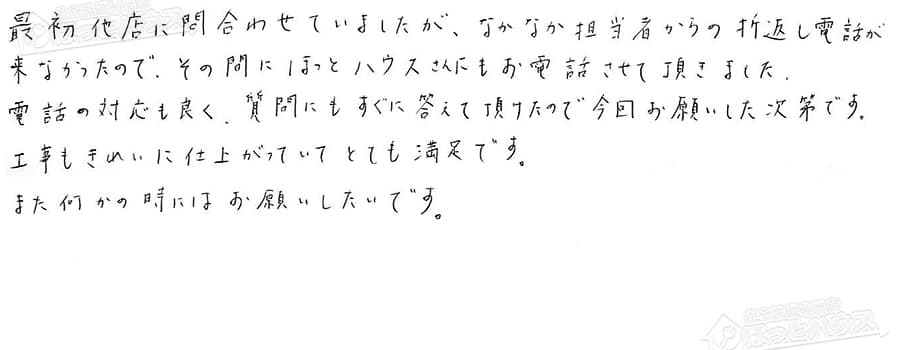 最初他店に問合わせていましたが、なかなか担当者からの折返し電話が
来なかったので、その間にほっとハウスさんにもお電話させて頂きました.
電話の対応も良く、質問にもすぐに答えて頂けたので今回お願いした次第です。
工事もきれいに仕上がっていてとても満足です。
また何かの時にはお願いしたいです。
ほっとハウス